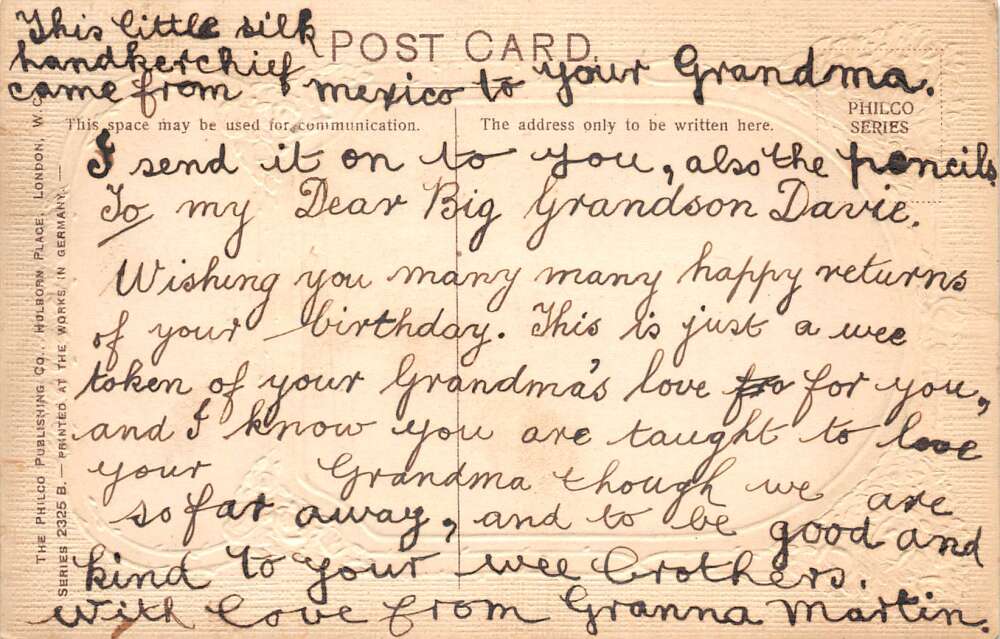 This little silk
handkerchief
came from mexico to your Grandma.
POST CARD.
PHILCO
SERIES
This space may be used for communication.
The address only to be written here.
I send it on to you, also the pencils
To my Dear Big Grandson Davie.
Wishing you many many happy returns
of your birthday. This is just a wee
token of your Grandma's love fro for you,
and I know you are taught to love
your Grandma though we are
so far away, and to be good and
kind to your wee brothers.
With love from Granna Martin.
THE PHILCO PUBLISHING CO., HOLBORN PLACE, LONDON, W.C.
SERIES 2325 B. — PRINTED AT THE WORKS IN GERMANY. —